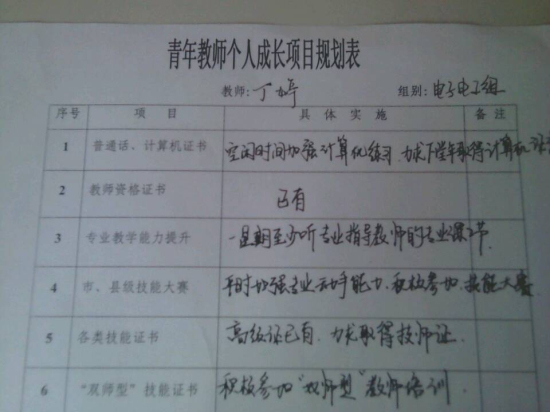 青年教师个人成长项目规划表
教师:丁婷 组别:电子电工组
序号 项目 具体实施 备注
1 普通话、计算机证书 空闲时间加强计算机练习,力求下学年取得计算机证书
2 教师资格证书 已有
3 专业教学能力提升 一星期至少听专业指导教师的专业课2节.
4 市、县级技能大赛 平时加强专业动手能力,积极参加技能大赛.
5 各类技能证书 高级证已有,力求取得技师证.
6 “双师型”技能证书 积极参加“双师型”教师培训